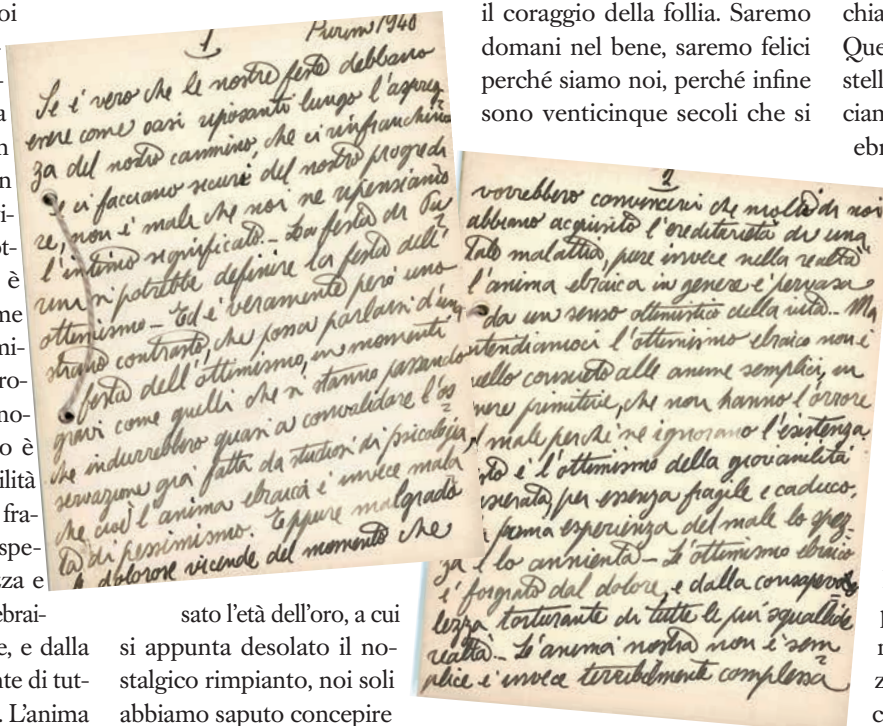 oi
-
-
a
n
n
i-
ot-
è
me
mi-
ro-
no-
o è
ilità
fra-
spe-
zza e
ebrai-
e, e dalla
nte di tut-
. L'anima
1 Purim 1940
Se e' vero che le nostre feste debbano
essere come oasi riposanti lungo l'asprez
za del nostro cammino, che ci rinfranchino
e ci facciano securi del nostro progredi
re, non e' male che noi ne ripensiamo
l'intimo significato.- La festa di Pu
rim si potrebbe definire la festa dell'
ottimismo - Ed e' veramente però uno
strano contrasto, che possa parlarsi d'una
festa dell'ottimismo, in momenti
gravi come quelli che si stanno passando
che indurrebbero quasi a convalidare l'os
servazione già fatta da studiosi di psicologia,
che cioè l'anima ebraica è invece mala
ta di pessimismo. Eppure malgrado
le dolorose vicende del momento che
sato l'età dell'oro, a cui
si appunta desolato il no-
stalgico rimpianto, noi soli
abbiamo saputo concepire
il coraggio della follia. Saremo
domani nel bene, saremo felici
perché siamo noi, perché infine
sono venticinque secoli che si
2
vorrebbero convincerci che molti di noi
abbiano acquisito l'ereditarietà di una
tale malattia, pure invece nella realtà
l'anima ebraica in genere e' pervasa
da un senso ottimistico della vita.- Ma
intendiamoci l'ottimismo ebraico non è
quello consueto alle anime semplici, in
nere primitive, che non hanno l'orrore
l male perché ne ignorano l'esistenza.
sto è l'ottimismo della giovanilità
nsierata, per essenza fragile e caduco,
prima esperienza del male lo spez
za e lo annienta - L'ottimismo ebraico
e' forgiato dal dolore, e dalla consapevo
lezza torturante di tutte le più squallide
realtà.- L'anima nostra non è sem
plice è invece terribilmente complessa
chia
Que
stell
cian
ebr
p
n
z
c